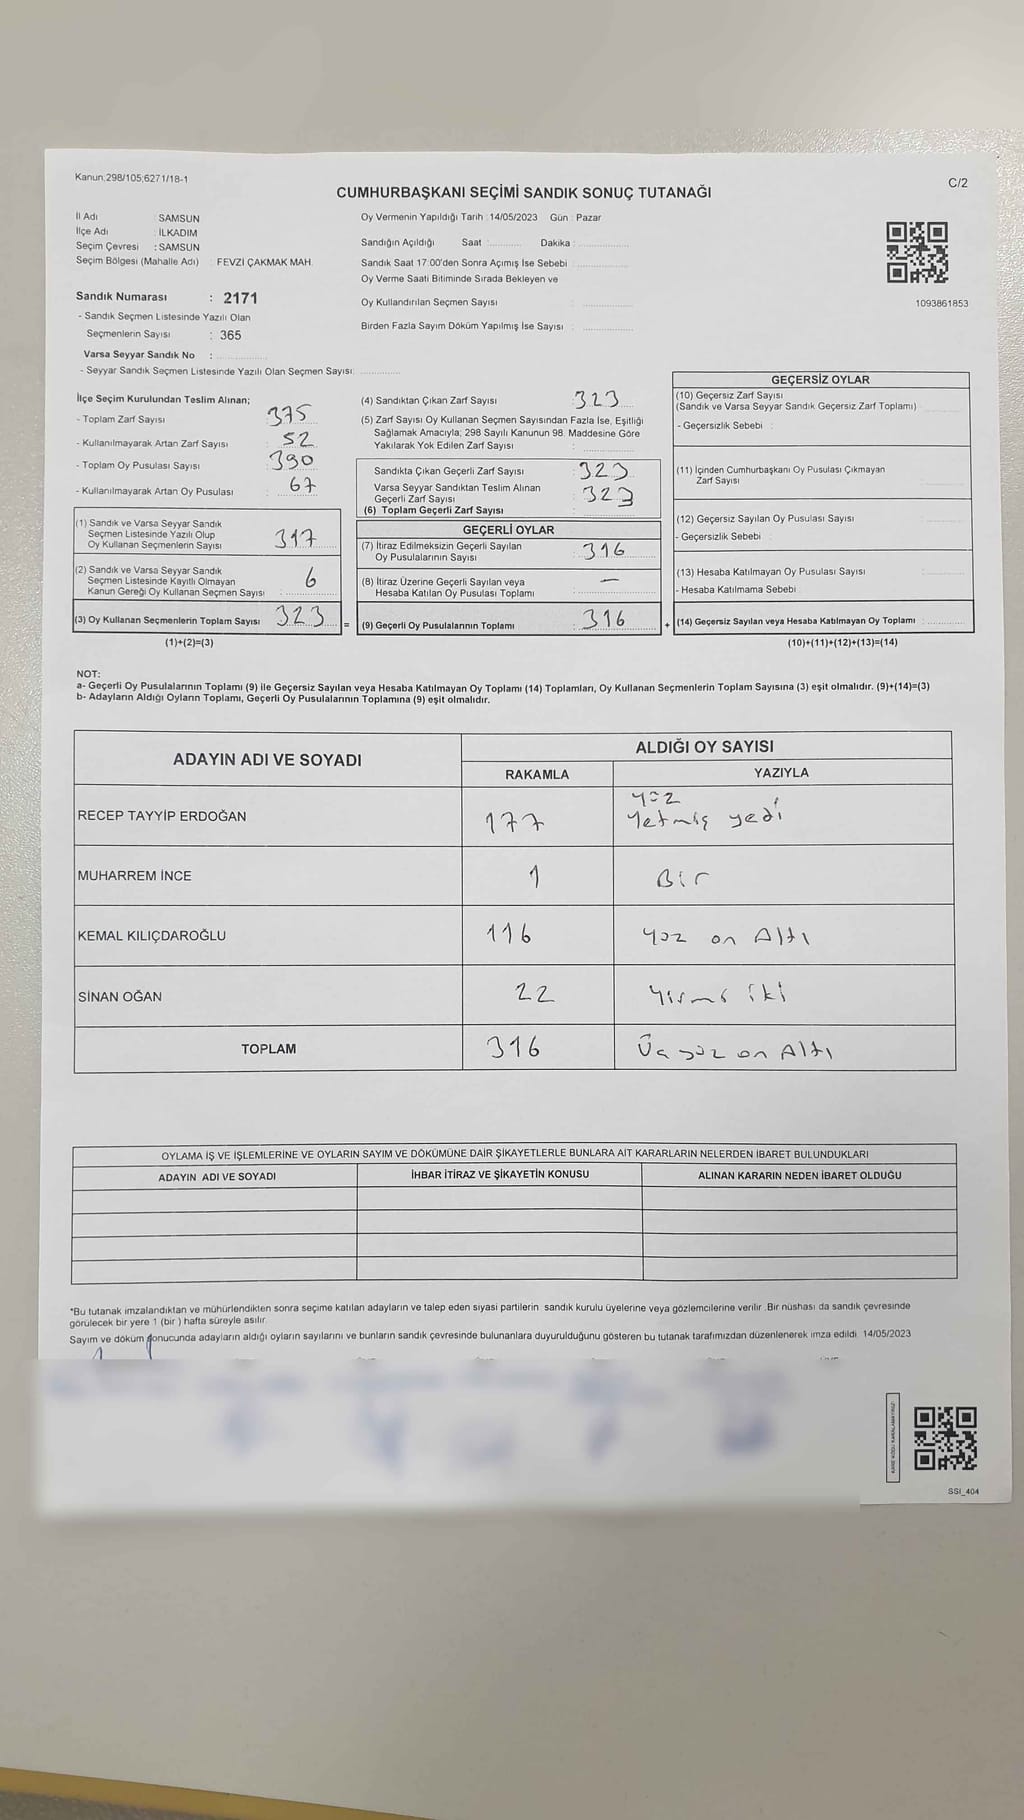 Kanun;298/105;6271/18-1
C/2
CUMHURBAŞKANI SEÇİMİ SANDIK SONUÇ TUTANAĞI
İl Adı : SAMSUN
İlçe Adı : İLKADIM
Seçim Çevresi : SAMSUN
Seçim Bölgesi (Mahalle Adı) : FEVZİ ÇAKMAK MAH.
Sandık Numarası : 2171
- Sandık Seçmen Listesinde Yazılı Olan
Seçmenlerin Sayısı : 365
Varsa Seyyar Sandık No :
- Seyyar Sandık Seçmen Listesinde Yazılı Olan Seçmen Sayısı:
Oy Vermenin Yapıldığı Tarih : 14/05/2023 Gün : Pazar
Sandığın Açıldığı Saat : Dakika :
Sandık Saat 17:00'den Sonra Açımış İse Sebebi :
Oy Verme Saati Bitiminde Sırada Bekleyen ve
Oy Kullandırılan Seçmen Sayısı :
Birden Fazla Sayım Döküm Yapılmış İse Sayısı :
1093861853
İlçe Seçim Kurulundan Teslim Alınan;
- Toplam Zarf Sayısı : 375
- Kullanılmayarak Artan Zarf Sayısı : 52
- Toplam Oy Pusulası Sayısı : 390
- Kullanılmayarak Artan Oy Pusulası : 67
(1) Sandık ve Varsa Seyyar Sandık
Seçmen Listesinde Yazılı Olup
Oy Kullanan Seçmenlerin Sayısı : 317
(2) Sandık ve Varsa Seyyar Sandık
Seçmen Listesinde Kayıtlı Olmayan
Kanun Gereği Oy Kullanan Seçmen Sayısı : 6
(3) Oy Kullanan Seçmenlerin Toplam Sayısı : 323
(1)+(2)=(3)
(4) Sandıktan Çıkan Zarf Sayısı : 323
(5) Zarf Sayısı Oy Kullanan Seçmen Sayısından Fazla İse, Eşitliği
Sağlamak Amacıyla; 298 Sayılı Kanunun 98. Maddesine Göre
Yakılarak Yok Edilen Zarf Sayısı :
Sandıkta Çıkan Geçerli Zarf Sayısı : 323
Varsa Seyyar Sandıktan Teslim Alınan
Geçerli Zarf Sayısı : 323
(6) Toplam Geçerli Zarf Sayısı :
GEÇERLİ OYLAR
(7) İtiraz Edilmeksizin Geçerli Sayılan
Oy Pusulalarının Sayısı : 316
(8) İtiraz Üzerine Geçerli Sayılan veya
Hesaba Katılan Oy Pusulası Toplamı : —
= (9) Geçerli Oy Pusulalarının Toplamı : 316 +
GEÇERSİZ OYLAR
(10) Geçersiz Zarf Sayısı
(Sandık ve Varsa Seyyar Sandık Geçersiz Zarf Toplamı) :
- Geçersizlik Sebebi :
(11) İçinden Cumhurbaşkanı Oy Pusulası Çıkmayan
Zarf Sayısı :
(12) Geçersiz Sayılan Oy Pusulası Sayısı :
- Geçersizlik Sebebi :
(13) Hesaba Katılmayan Oy Pusulası Sayısı :
- Hesaba Katılmama Sebebi :
(14) Geçersiz Sayılan veya Hesaba Katılmayan Oy Toplamı :
(10)+(11)+(12)+(13)=(14)
NOT:
a- Geçerli Oy Pusulalarının Toplamı (9) ile Geçersiz Sayılan veya Hesaba Katılmayan Oy Toplamı (14) Toplamları, Oy Kullanan Seçmenlerin Toplam Sayısına (3) eşit olmalıdır. (9)+(14)=(3)
b- Adayların Aldığı Oyların Toplamı, Geçerli Oy Pusulalarının Toplamına (9) eşit olmalıdır.
ADAYIN ADI VE SOYADI
ALDIĞI OY SAYISI
RAKAMLA YAZIYLA
RECEP TAYYİP ERDOĞAN 177 yüz
Yetmiş yedi
MUHARREM İNCE 1 Bir
KEMAL KILIÇDAROĞLU 116 yüz on Altı
SİNAN OĞAN 22 Yirmi iki
TOPLAM 316 Üç yüz on Altı
OYLAMA İŞ VE İŞLEMLERİNE VE OYLARIN SAYIM VE DÖKÜMÜNE DAİR ŞİKAYETLERLE BUNLARA AİT KARARLARIN NELERDEN İBARET BULUNDUKLARI
ADAYIN ADI VE SOYADI İHBAR İTİRAZ VE ŞİKAYETİN KONUSU ALINAN KARARIN NEDEN İBARET OLDUĞU
*Bu tutanak imzalandıktan ve mühürlendikten sonra seçime katılan adayların ve talep eden siyasi partilerin sandık kurulu üyelerine veya gözlemcilerine verilir .Bir nüshası da sandık çevresinde
görülecek bir yere 1 (bir ) hafta süreyle asılır.
Sayım ve döküm sonucunda adayların aldığı oyların sayılarını ve bunların sandık çevresinde bulunanlara duyurulduğunu gösteren bu tutanak tarafımızdan düzenlenerek imza edildi. 14/05/2023
SSI_404